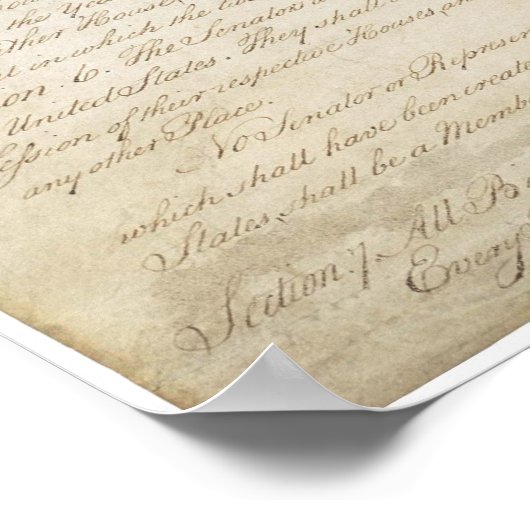 the Yeas
other House
in which the two
on. 6. The Senators
United States. They shall
Session of their respective Houses, an
any other Place.
No Senator or Represen
which shall have been create
States, shall be a Memb
Section. 7. All Bi
Every